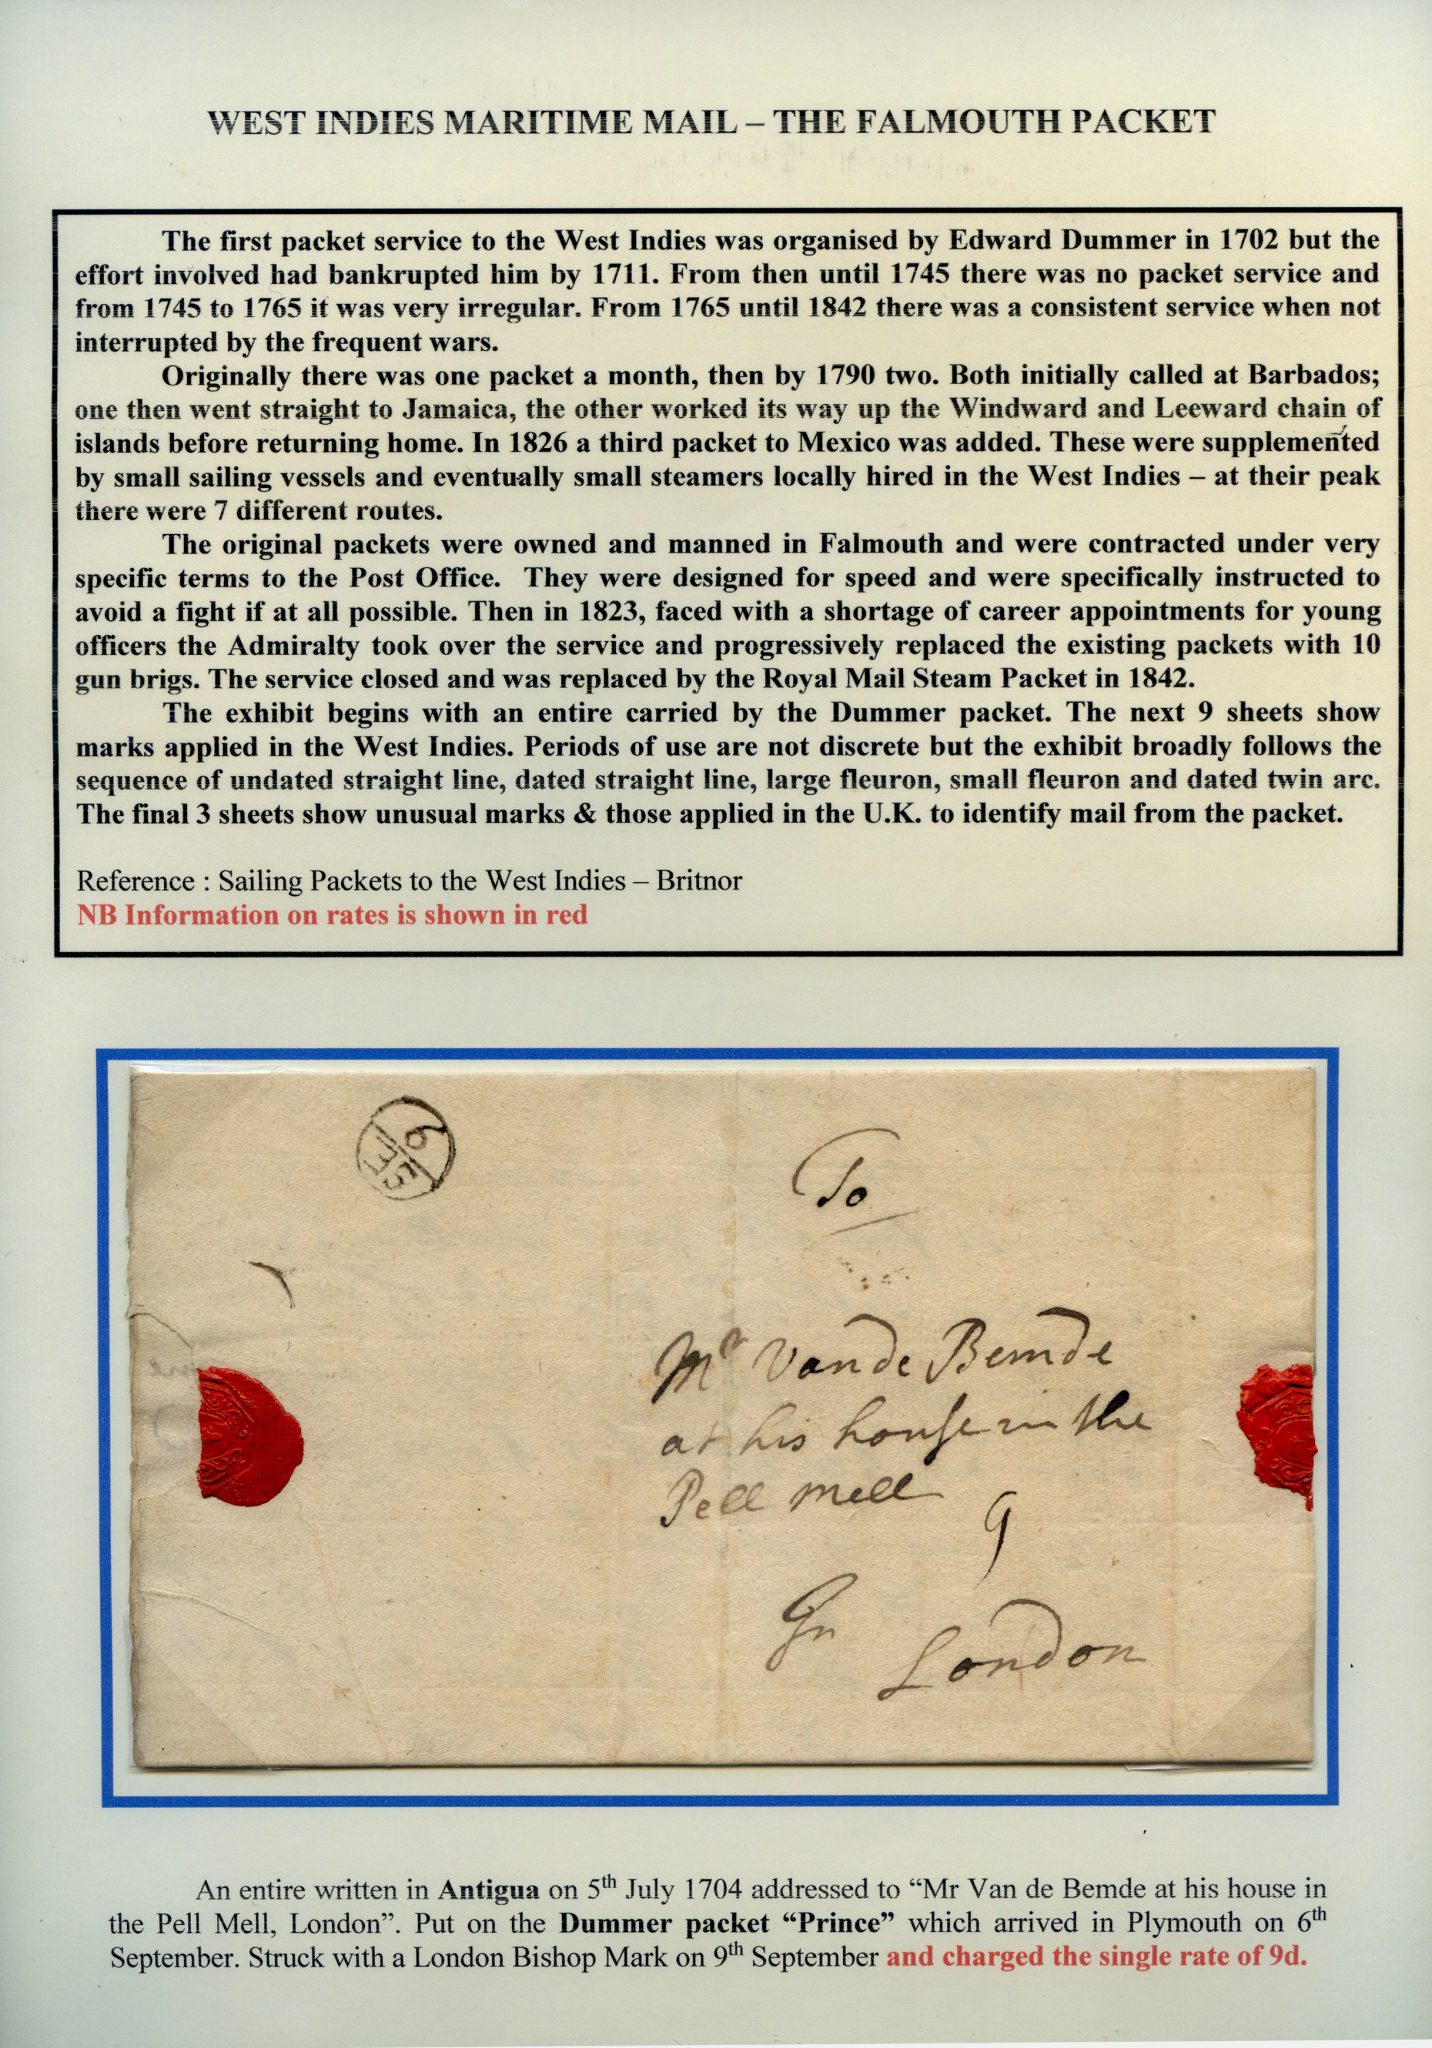 WEST INDIES MARITIME MAIL – THE FALMOUTH PACKET
The first packet service to the West Indies was organised by Edward Dummer in 1702 but the
effort involved had bankrupted him by 1711. From then until 1745 there was no packet service and
from 1745 to 1765 it was very irregular. From 1765 until 1842 there was a consistent service when not
interrupted by the frequent wars.
Originally there was one packet a month, then by 1790 two. Both initially called at Barbados;
one then went straight to Jamaica, the other worked its way up the Windward and Leeward chain of
islands before returning home. In 1826 a third packet to Mexico was added. These were supplemented
by small sailing vessels and eventually small steamers locally hired in the West Indies – at their peak
there were 7 different routes.
The original packets were owned and manned in Falmouth and were contracted under very
specific terms to the Post Office. They were designed for speed and were specifically instructed to
avoid a fight if at all possible. Then in 1823, faced with a shortage of career appointments for young
officers the Admiralty took over the service and progressively replaced the existing packets with 10
gun brigs. The service closed and was replaced by the Royal Mail Steam Packet in 1842.
The exhibit begins with an entire carried by the Dummer packet. The next 9 sheets show
marks applied in the West Indies. Periods of use are not discrete but the exhibit broadly follows the
sequence of undated straight line, dated straight line, large fleuron, small fleuron and dated twin arc.
The final 3 sheets show unusual marks & those applied in the U.K. to identify mail from the packet.
Reference : Sailing Packets to the West Indies – Britnor
NB Information on rates is shown in red
9
SE
To
Mr Van de Bemde
at his house in the
Pell Mell
9
In
London
An entire written in Antigua on 5th July 1704 addressed to “Mr Van de Bemde at his house in
the Pell Mell, London”. Put on the Dummer packet “Prince” which arrived in Plymouth on 6th
September. Struck with a London Bishop Mark on 9th September and charged the single rate of 9d.